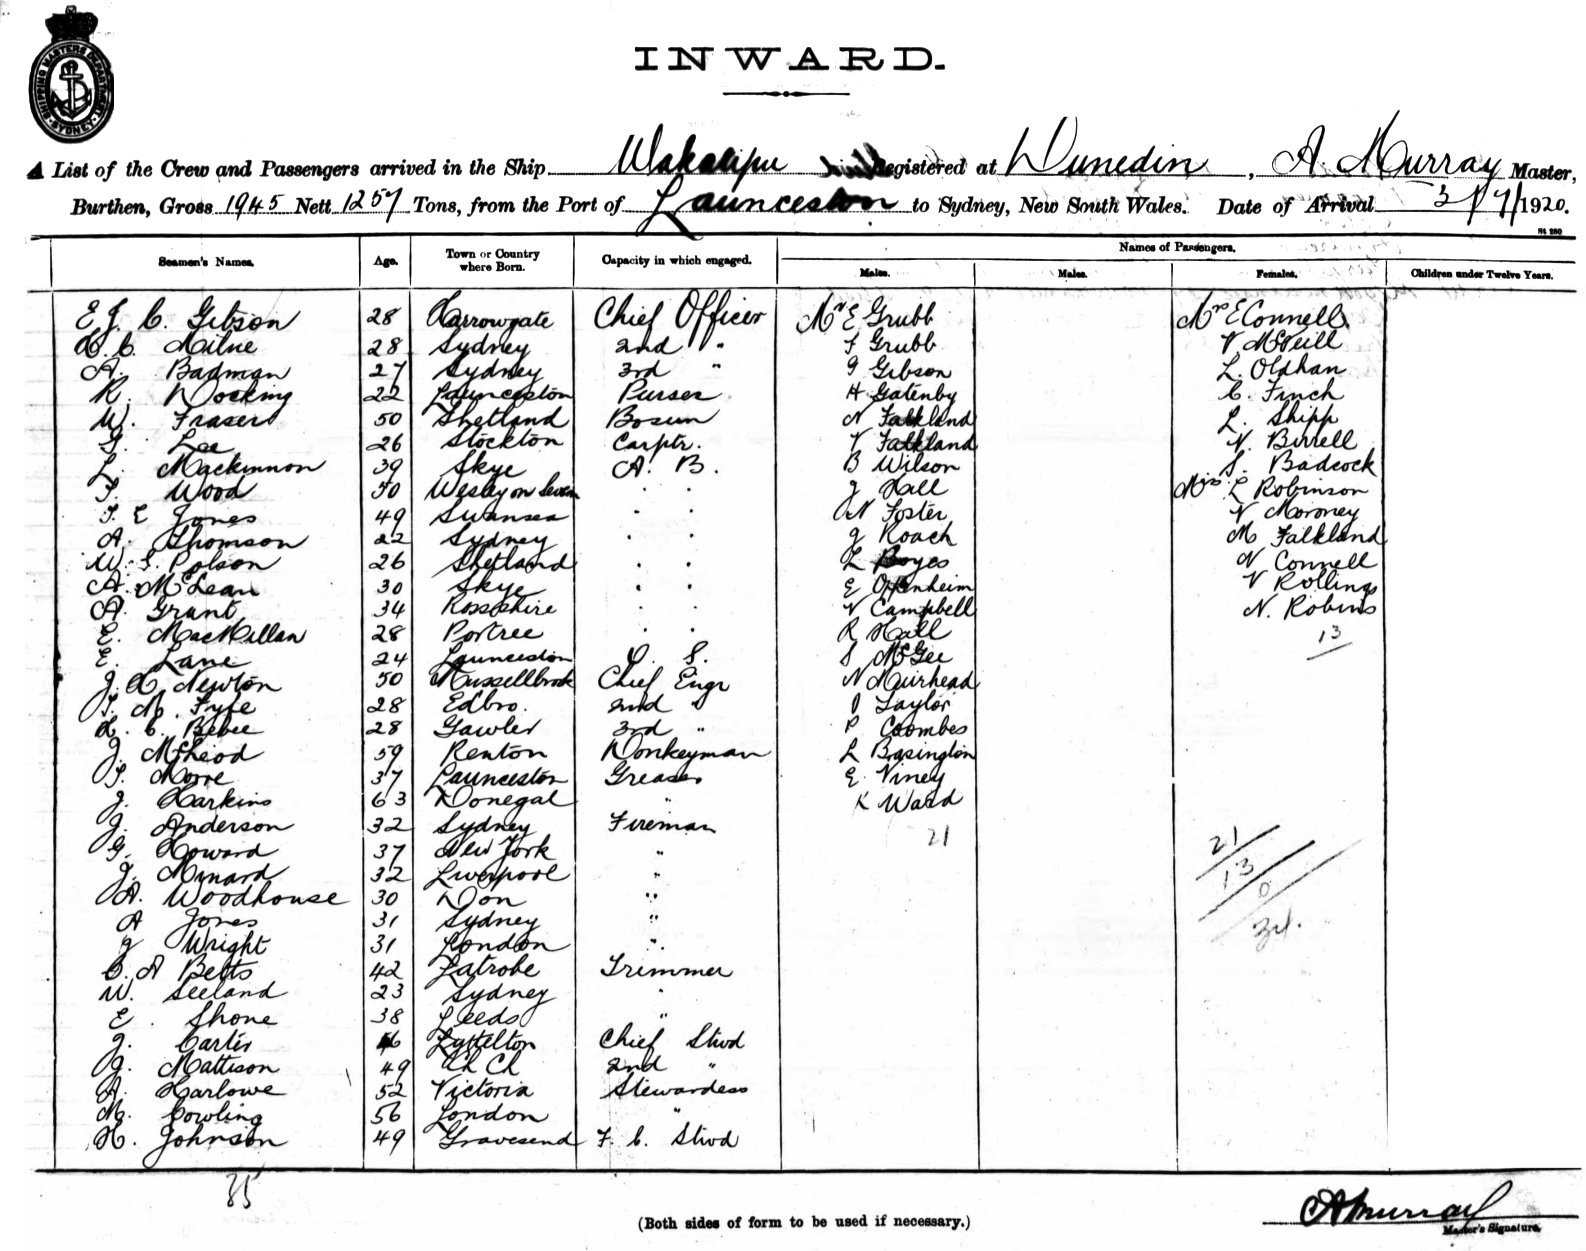 SHIPPING MASTERS DEPARTMENT
SYDNEY
INWARD.
A List of the Crew and Passengers arrived in the Ship Wakatipu Registered at Dunedin, A. Murray Master,
Burthen, Gross 1945 Nett 1257 Tons, from the Port of Launceston to Sydney, New South Wales. Date of Arrival 31/7/1920.
Names of Passengers.
Seamen's Names. Age. Town or Country where Born. Capacity in which engaged. Males. Males. Females. Children under Twelve Years.
E J. C. Gibson 28 Harrowgate Chief Officer Mr E Grubb Mrs E Connell
H. C. Milne 28 Sydney 2nd " F Grubb V McNeill
A. Badman 27 Sydney 3rd " G Gibson L. Oldhan
R. Docking 22 Launceston Purser H Gatenby C. Finch
W. Fraser 50 Shetland Bosun N Falkland L. Shipp
G. Lee 26 Stockton Carptr. V Falkland N. Birrell
L. Mackinnon 39 Skye A. B. B Wilson S. Badcock
F. Wood 50 J Hall Miss L Robinson
T. E Jones 49 Swansea N Foster V Moroney
A. Thomson 22 Sydney J Roach M Falkland
W. S. Polson 26 Shetland L Boyes N Connell
A. McLean 30 Skye E Oppenheim V Rollings
A. Grant 34 Rossshire V Campbell N. Robins
E. MacMillan 28 Portree R Hall 13
E. Lane 24 Launceston O. S. S McGee
J. H Newton 50 Mussellbrook Chief Engr N Muirhead
T. M. Fyfe 28 Edbro. 2nd " Taylor
H. C. Bebee 28 Gawler 3rd " P Coombes
J. McLeod 59 Renton Donkeyman L Basington
T. Moore 37 Launceston Greaser E Viney
J. Harkins 63 Donegal " K Ward
J. Anderson 32 Sydney Fireman 21 21
G. Howard 37 New York " 13
J. Minard 32 Liverpool " 0
A. Woodhouse 30 Don " 34.
A Jones 31 Sydney "
J Wright 31 London "
C. A Betts 42 Latrobe Trimmer
W. Seeland 23 Sydney "
E. Shone 38 Leeds "
J. Carter Lyttelton Chief Stwd
J. Mattison 49 Ch Ch 2nd "
A. Harlowe 52 Victoria Stewardess
M. Cowling 56 London "
H. Johnson 49 Gravesend F. C. Stwd
35
(Both sides of form to be used if necessary.)
A Murray
Master's Signature.